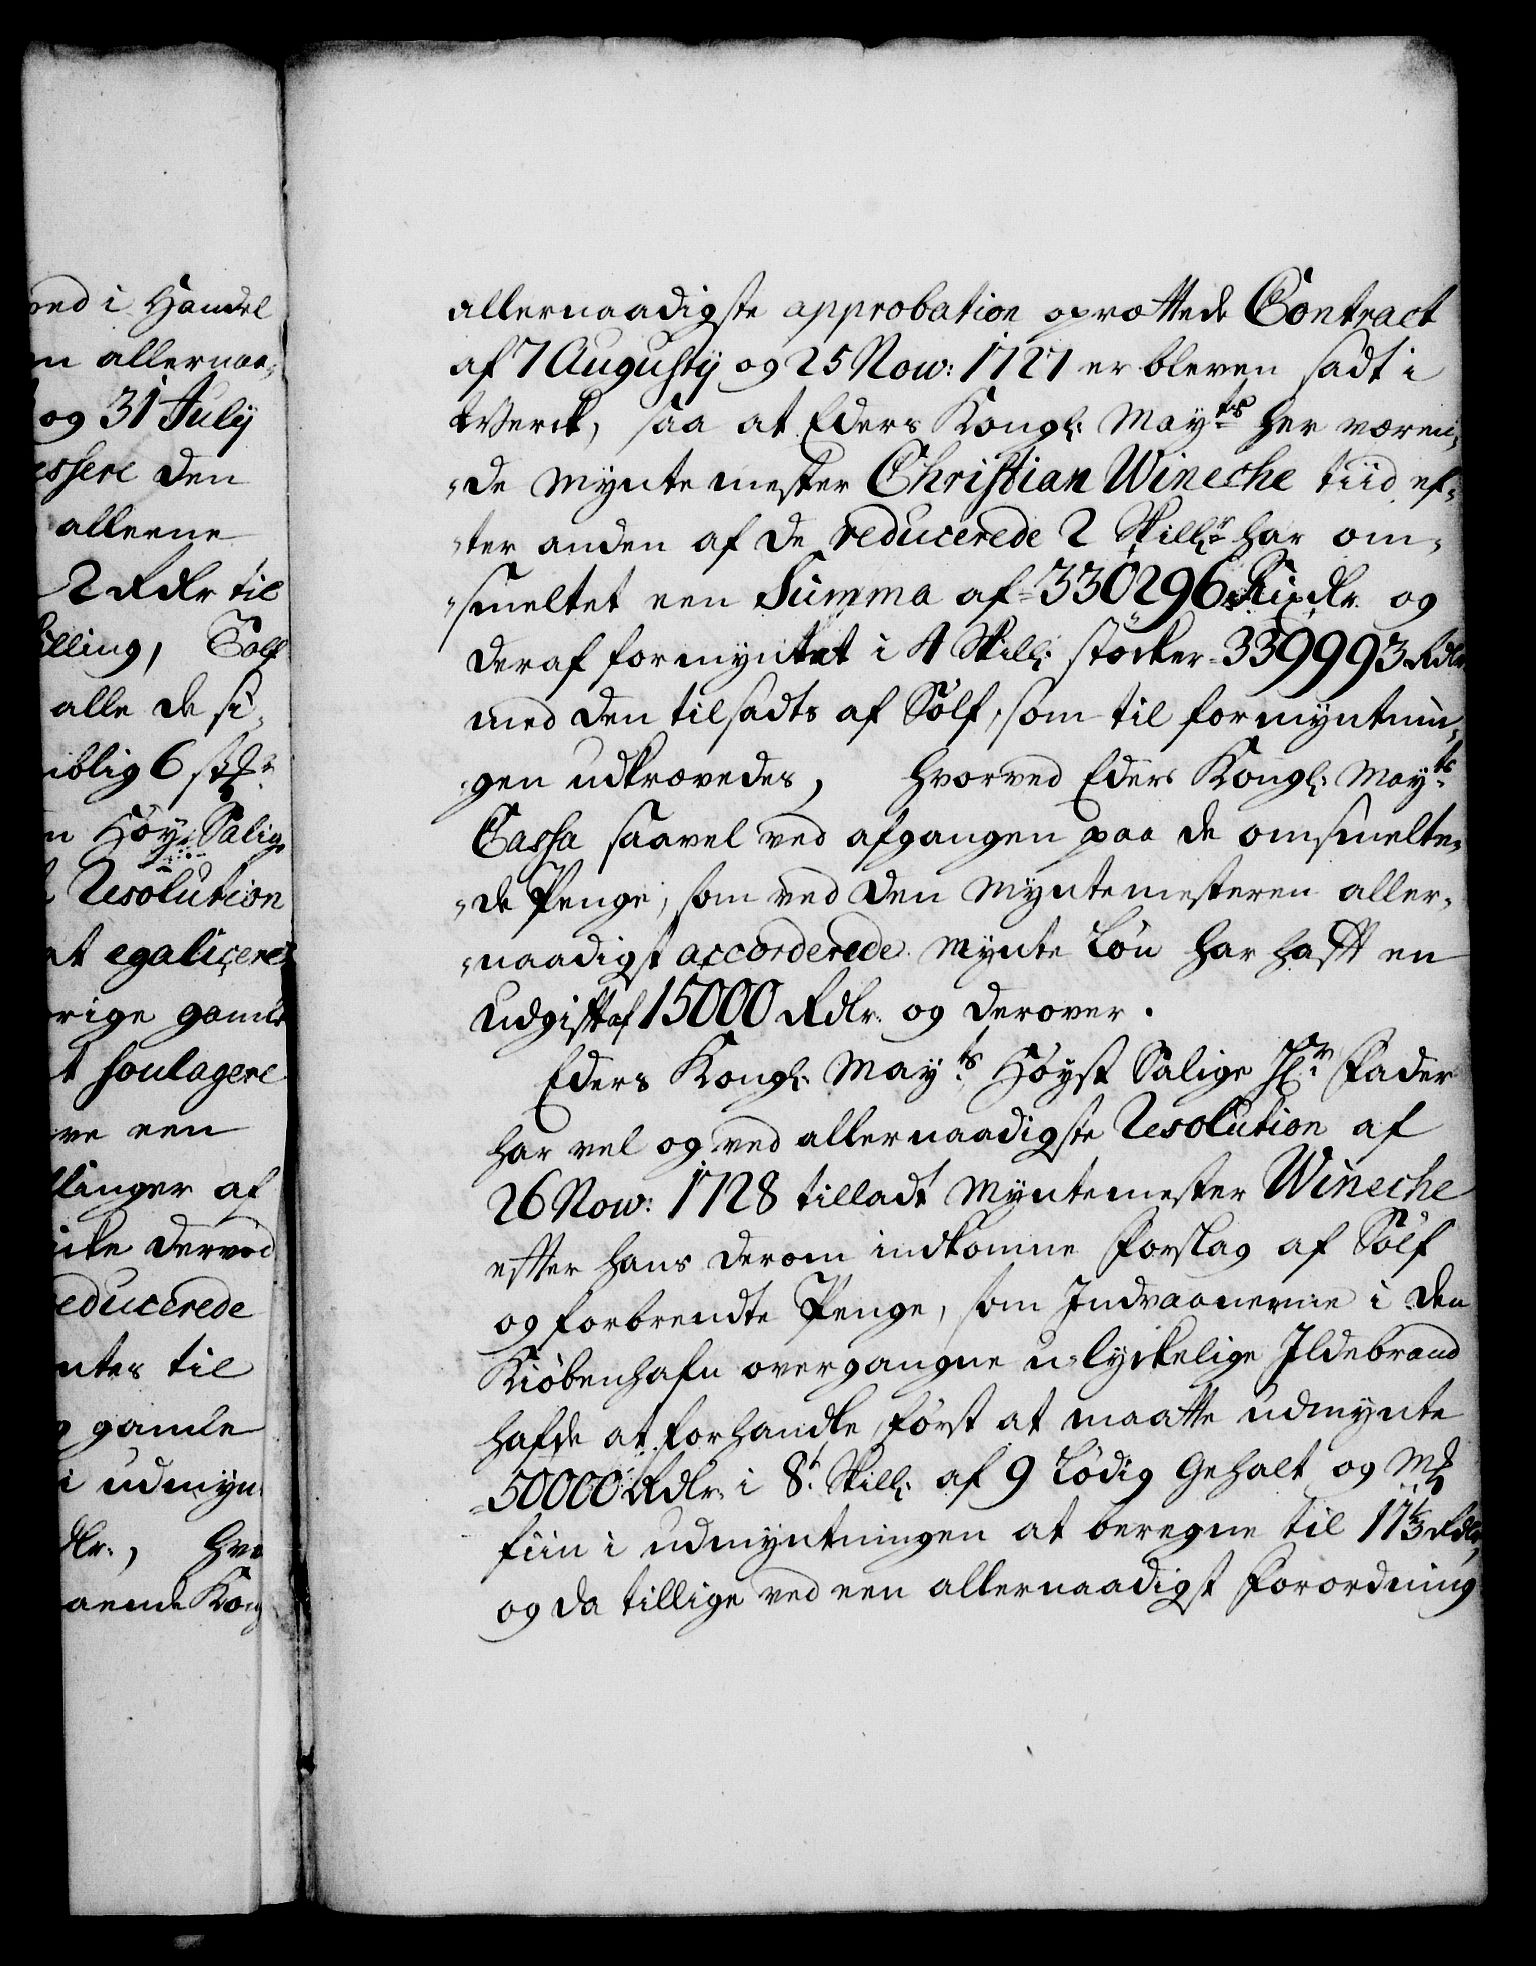 ved i Handel
n allernaa-
og 31 July
essere den
alleene
2 Rdlr til
illing, Tolf
alle de si-
niblig 6 sk
n Höy-Salig
Resolution
at egalicere
rige gamle
t soulagere
ve een
llinger af
icke derved
educerede
ntes til
gamle
i udmyn
dlr., hvo
aende Kong
allernaadigste approbation oprættede Contract
af 7 Augustij og 25 Nov: 1727 er bleven sadt i
Werck, saa at Eders Kongl: Mayts her væren-
-de Myntemester Christian Wineche tiid ef-
-ter anden af de reducerede 2 Skillr har om-
-smeltet een Summa af 330296 Rixdlr. og
deraf formyntet i 4 Skill: støcker 339993 Rdlr
med den tilsadts af Sølf, som til formyntnin-
-gen udkrævedes, hvorved Eders Kongl: Mayts
Cassa saavel ved afgangen paa de omsmelte-
-de Penge, som ved den Myntemesteren aller-
-naadigst accorderede Mynte Løn har hafft en
Udgifft af 15000 Rdlr. og derover.
Eders Kongl: Mayts Høyst Salige Hr Fader
har vel og ved allernaadigste Resolution af
26 Nov: 1728 tilladt Myntemester Wineche
effter hans derom indkomne Forslag af Sølf
og forbrendte Penge, som Indvaanerne i den
Kiøbenhafn overgangne u-lyckelige Ildebrand
hafde at forhandle, først at maatte udmynte
50000 Rdlr. i 8t Skill: af 9 Lødig Gehalt og Mk
fiin i udmyntningen at beregne til 11 1/3 Rdlr,
og da tillige ved een allernaadigst Forordning